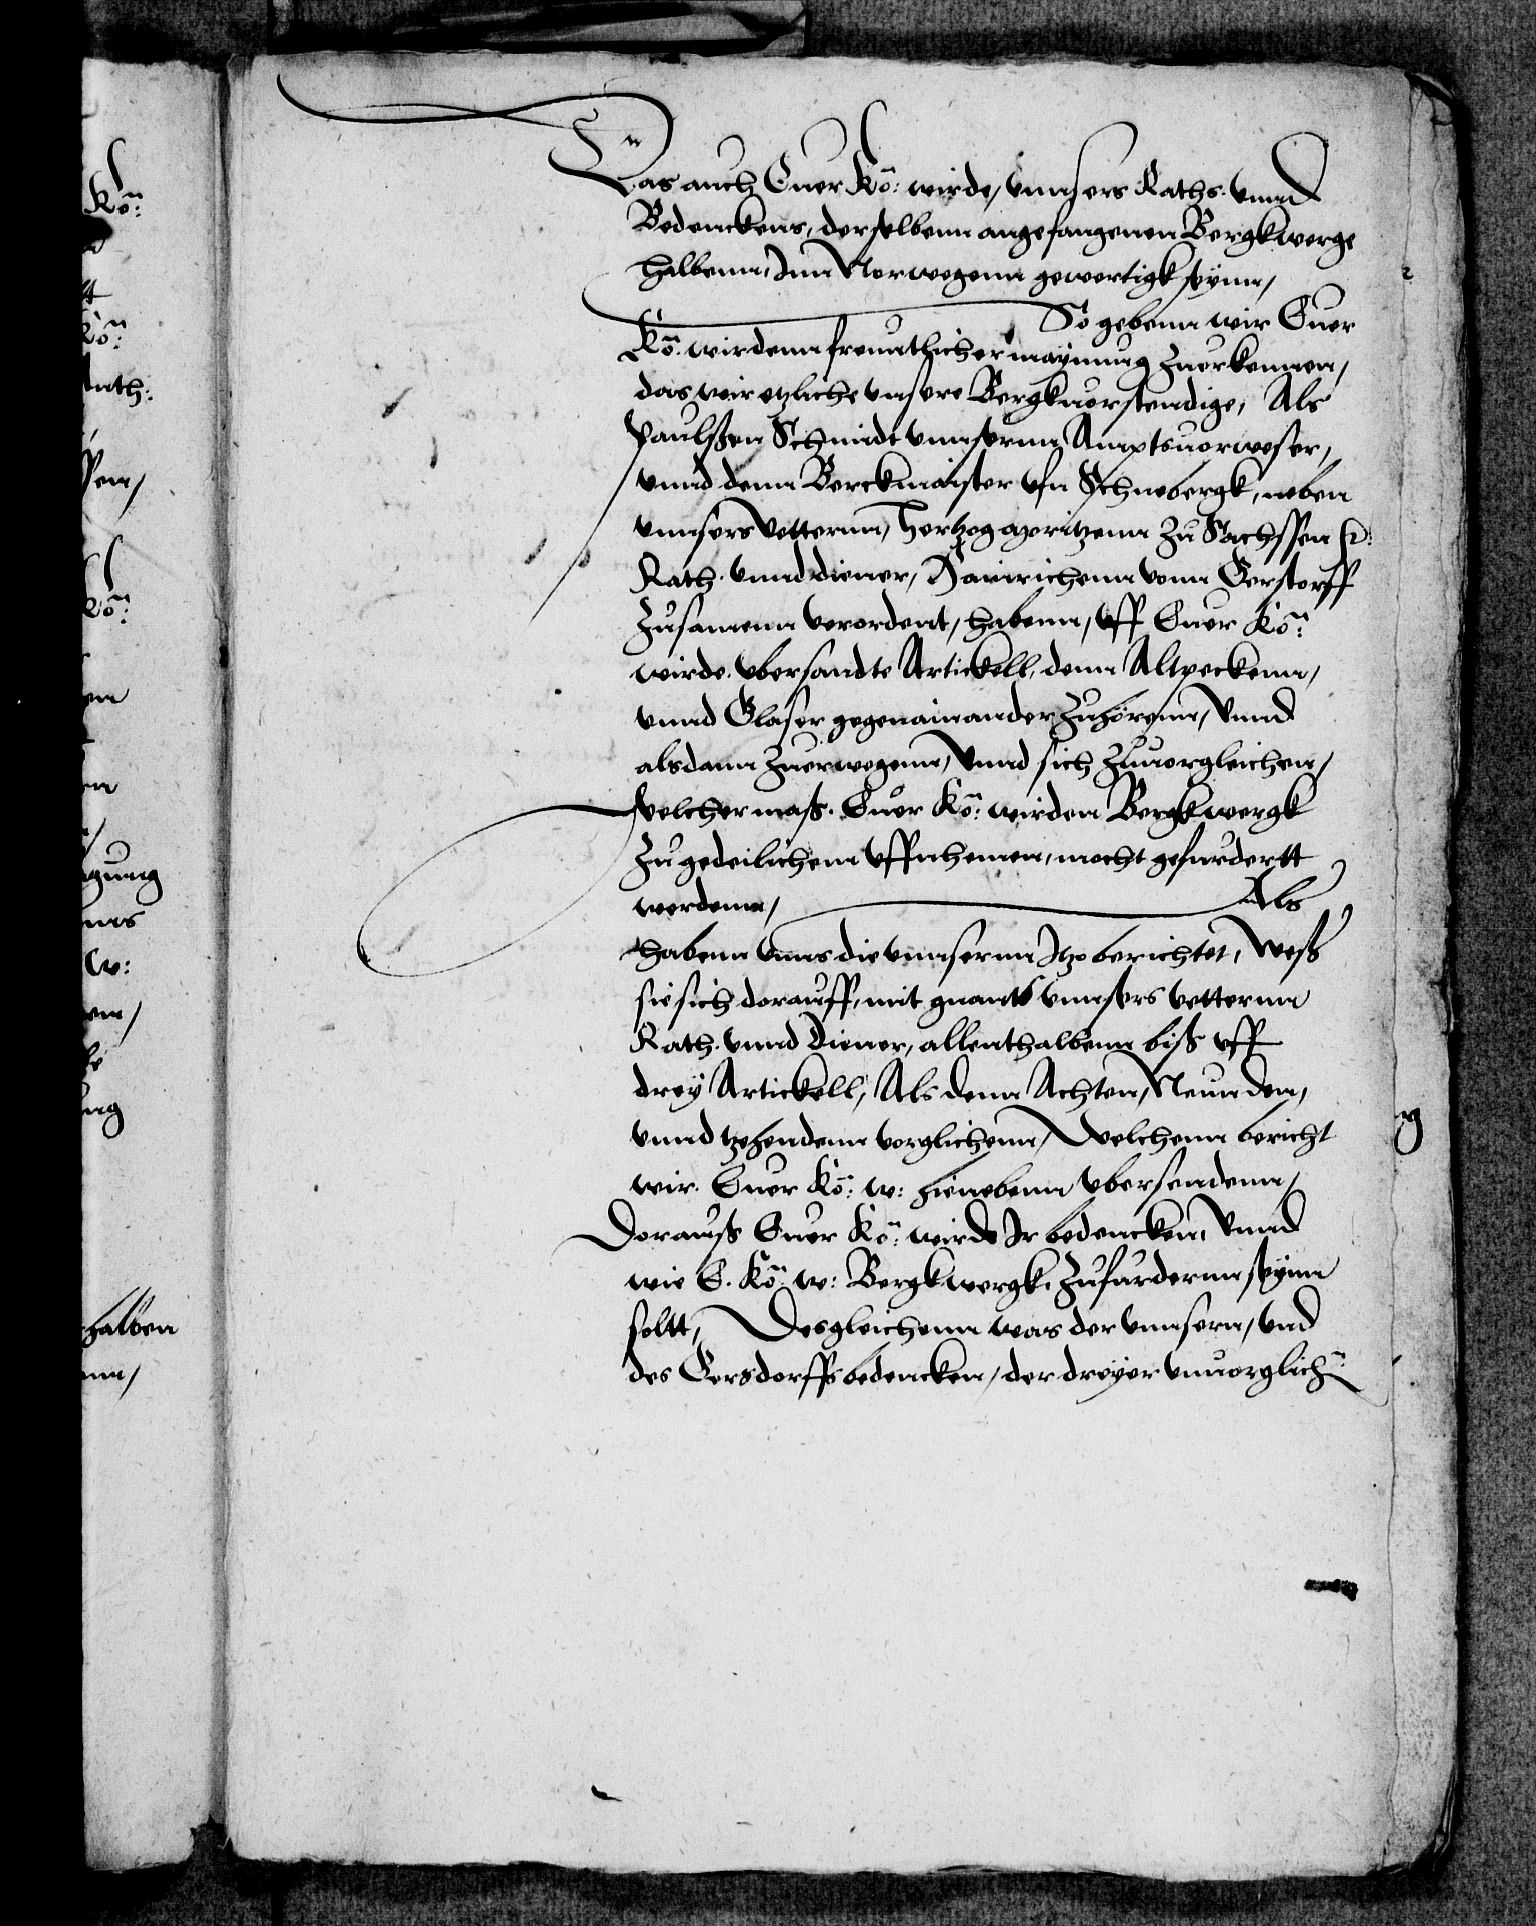 Kö:
Kö:
Kö:
gung
w:
halben
Das auch Euer Kö: wirde, vnnsers Raths. vnnd
Bedenckens, derselbenn angefangenen Bergkwerge
halbenn, Inn Norwegenn gewertigk seynn,
So gebenn wir Euer
Kö: wirdenn freuntlicher maynung zuerkennen,
das wir etzliche vnsere Bergkuorstendige, Als
Paulssen Schmidt vnnsernn Amptsuorweser,
vnnd denn Berckmaister vfn Schnebergk, neben
vnnsers Vetternn, Hertzog Moritzenn zu Sachssen
Rath. vnnd diener, Hainrichenn vonn Gerstorff
zusamenn verordent, habenn, vff Euer Kö:
wirde. vbersandte Artickell, denn Altpeckenn,
vnnd Glaser gegenainander zuhörenn, Vnnd
alsdann zuerwegenn, Vnnd sich zuuorgleichen,
welcher mass. Euer Kö: wirden Bergkwergk
zu gedeilichenn vffnhemen, mocht gefurdertt
werdenn, Als
habenn vnns die vnnsernn Itzo berichtet, Wess
sie sich dorauff, mit gnants vnnsers vetternn
Rath. vnnd Diener, allenthalbenn biss vff
drey Artickell, Als denn Achten, Neunden,
vnnd tzehendenn vorglichenn, Welchenn bericht
wir. Euer Kö: w: hienebenn vbersendenn,
Dorauss Euer Kö: wirde Ir bedencken, Vnnd
wie E. Kö: w: Bergkwergk. zufurdernn seynn
soltt, Desgleichenn was der vnnsern, vnd
des Gersdorffs bedencken, der dreyer vnuorglich